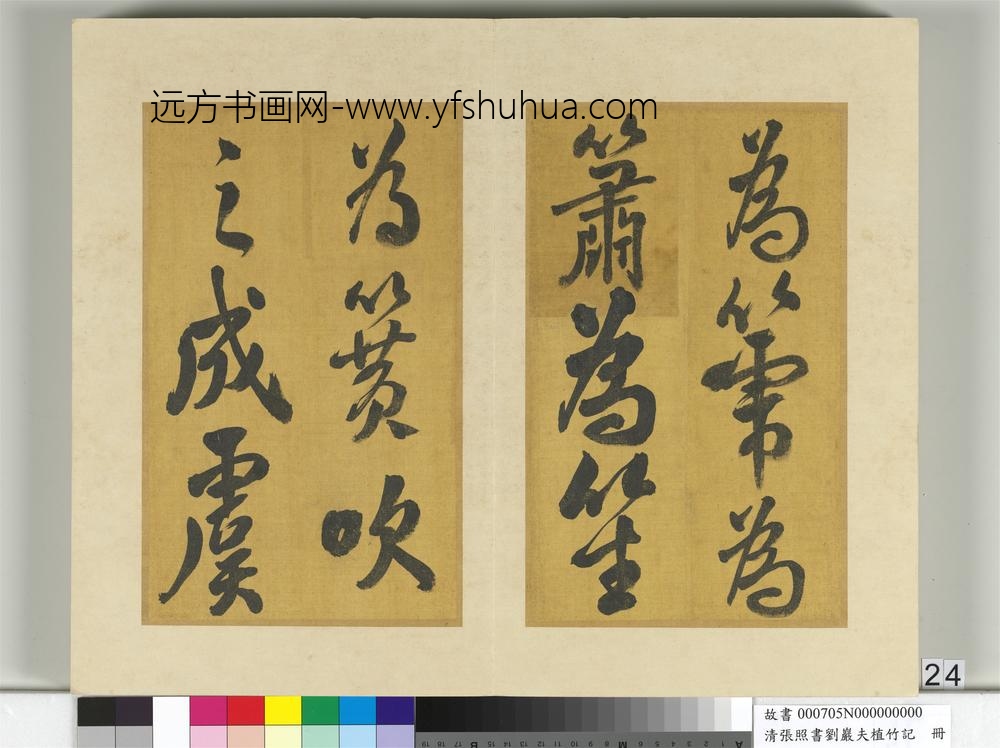 远方书画网-www.yfshuhua.com
為箒為
簫為笙
為簧吹
之成虞
24
故書 000705N000000000
清張照書劉巖夫植竹記 冊